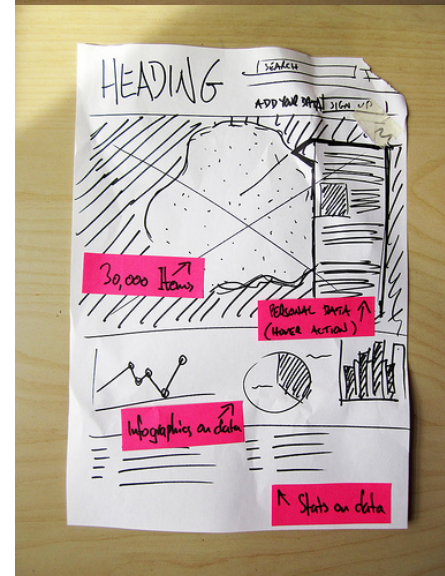 HEADING
SEARCH
ADD YOUR DATA / SIGN UP
30,000 Items
PERSONAL DATA
(HOVER ACTION)
Infographics on data
Stats on data